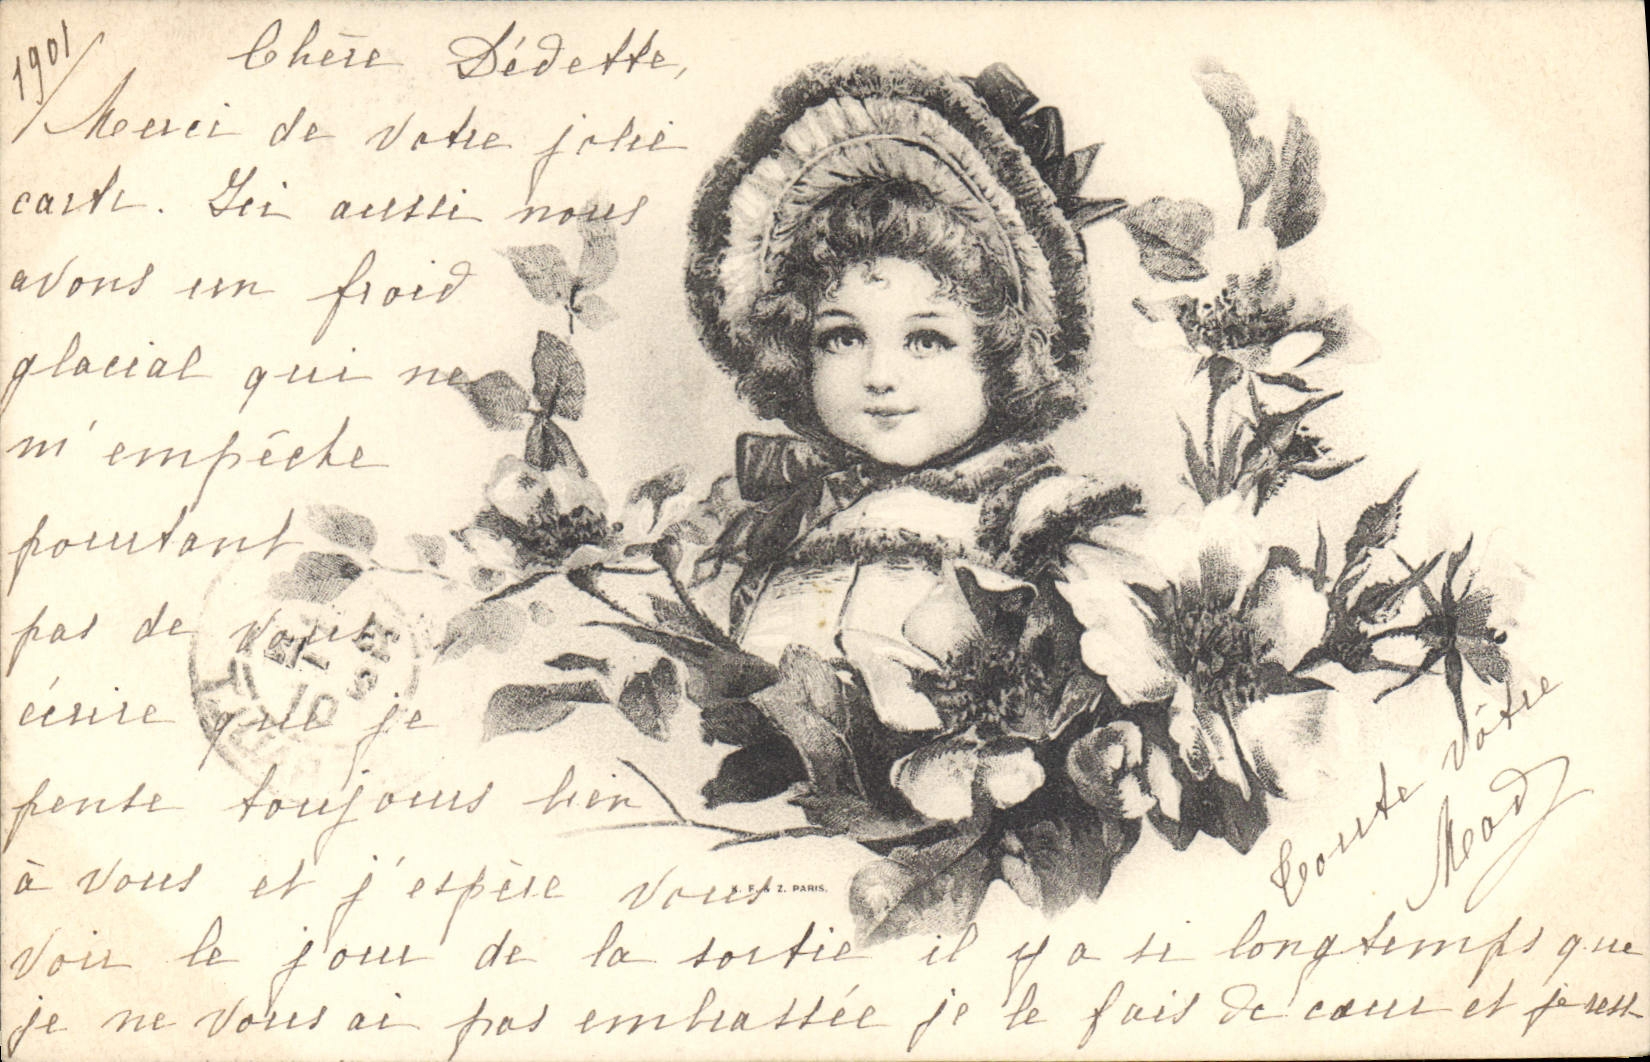 1901
Chère Dédette,
Merci de votre jolie
carte. Ici aussi nous
avons un froid
glacial qui ne
m'empêche
pourtant
pas de vous
écrire que je
pense toujours bien
à vous et j'espère vous
K. F. & Z. PARIS.
voir le jour de la sortie il y a si longtemps que
je ne vous ai pas embrassée je le fais de cœur et je reste
Toute vôtre
Mad